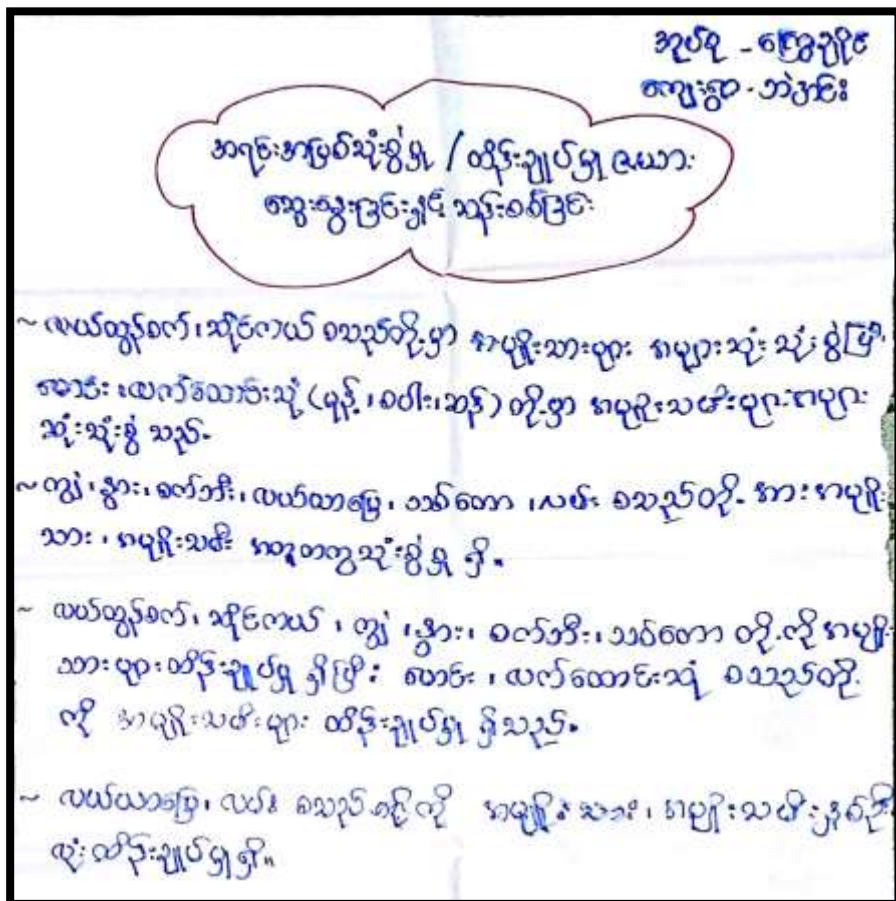 အုပ်စု - ကြွေချိုင်
ကျေးရွာ - ဘဲဒှင်း
အရင်းအမြစ်သုံးစွဲမှု / ထိန်းချုပ်မှု ဇယား
ဆွေးနွေးခြင်းနှင့် သန်းစစ်ခြင်း
~ လယ်ထွန်စက်၊ ဆိုင်ကယ် စသည်တို့မှာ အမျိုးသားများ အများဆုံး သုံးစွဲပြီး
မောင်း၊ လက်ထောင်းသုံ (မုန့်၊ စပါး၊ ဆန်) တို့မှာ အမျိုးသမီးများ အများ
ဆုံးသုံးစွဲ သည်။
~ ကျွဲ၊ နွား၊ စက်ဘီး၊ လယ်ယာမြေ၊ သစ်တော၊ လမ်း စသည်တို့ အား အမျိုး
သား၊ အမျိုးသမီး အတူတကွသုံးစွဲမှု ရှိ။
~ လယ်ထွန်စက်၊ ဆိုင်ကယ်၊ ကျွဲ၊ နွား၊ စက်ဘီး၊ သစ်တော တို့ကို အမျိုး
သားများ ထိန်းချုပ်မှု ရှိပြီး မောင်း၊ လက်ထောင်းသုံ စသည်တို့
ကို အမျိုးသမီးများ ထိန်းချုပ်မှု ရှိသည်။
~ လယ်ယာမြေ၊ လမ်း စသည်တို့ကို အမျိုးသား၊ အမျိုးသမီးနှစ်ဦး
လုံး ထိန်းချုပ်မှုရှိ။